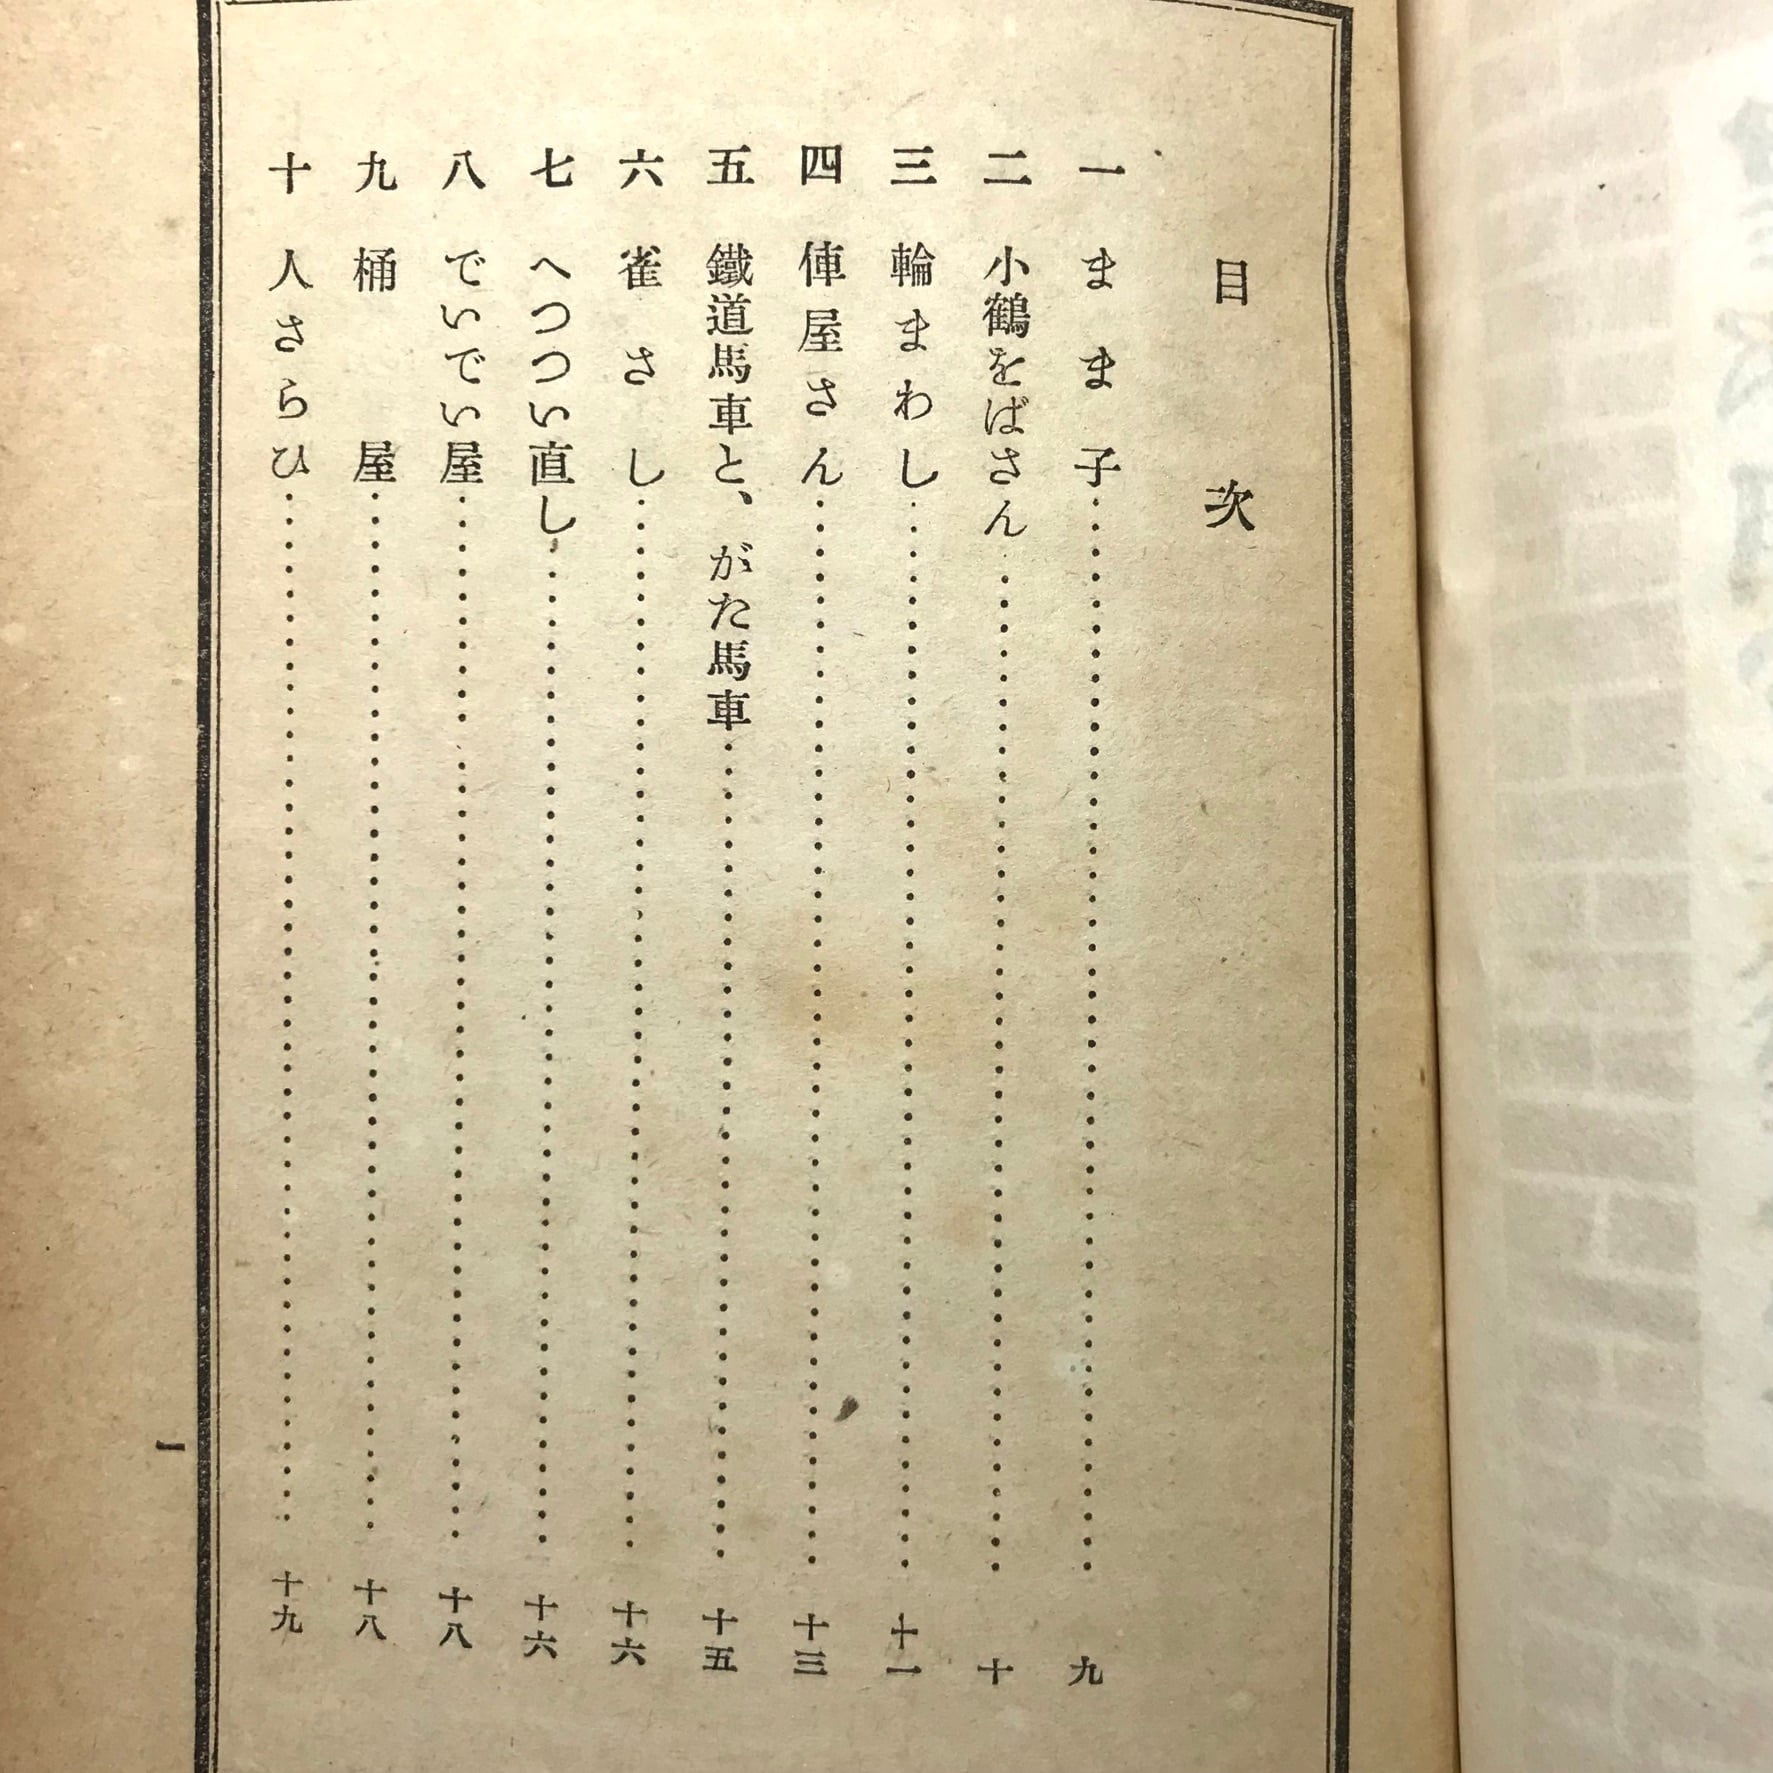 目次
一 まま子……九
二 小鶴をばさん……十
三 輪まわし……十一
四 俥屋さん……十三
五 鐵道馬車と、がた馬車……十五
六 雀さし……十六
七 へつつい直し……十六
八 でいでい屋……十八
九 桶屋……十八
十 人さらひ……十九
一